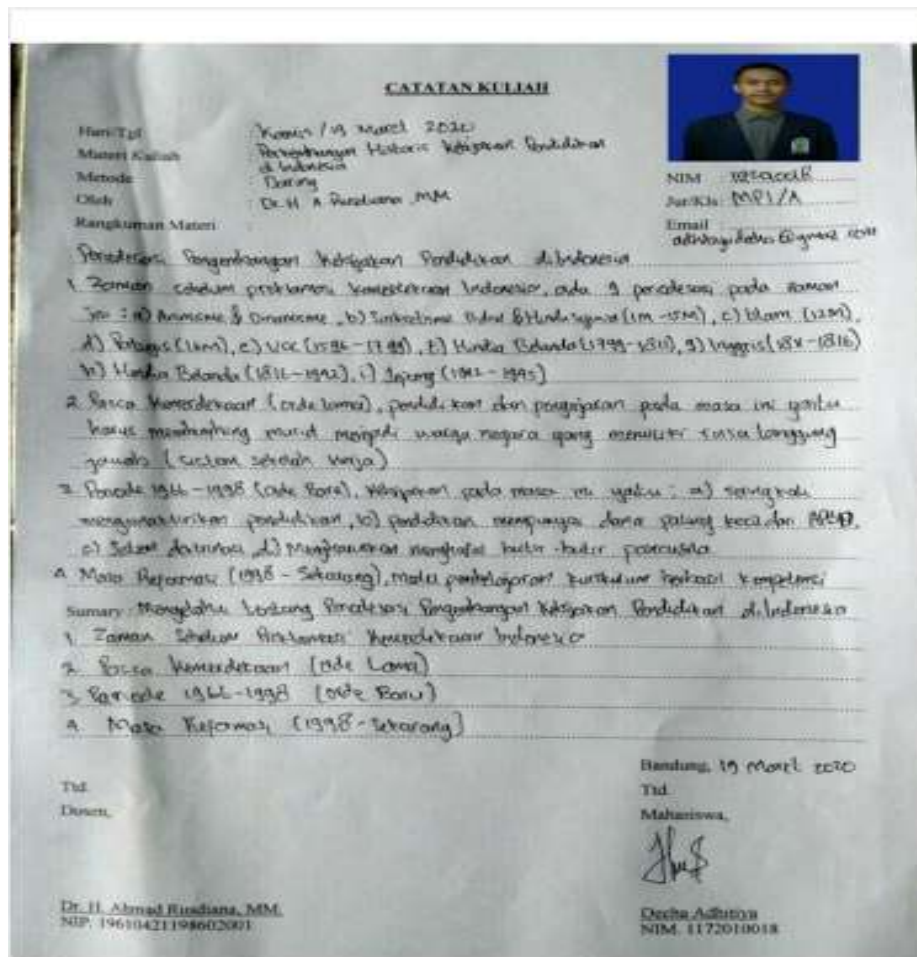 CATATAN KULIAH
Hari/Tgl : Kamis / 19 Maret 2020
Materi Kuliah : Perkembangan Historis Kebijakan Pendidikan
di Indonesia
Metode : Daring
Oleh : Dr. H. A. Rusdiana, MM
NIM
Jur/Kls : MPI/A
Rangkuman Materi :
Email
Periodesasi Pengembangan Kebijakan Pendidikan di Indonesia
1. Zaman sebelum proklamasi kemerdekaan Indonesia, ada 9 periodesasi pada zaman
ini : a) Animisme & Dinamisme, b) (1M - 15M), c) Islam (13M),
d) Portugis (16M), e) VOC (1596 - 1799), f) Hindia Belanda (1799 - 1811), g) Inggris (1811 - 1816)
h) Hindia Belanda (1816 - 1942), i) Jepang (1942 - 1945)
2. Pasca Kemerdekaan (orde lama), pendidikan dan pengajaran pada masa ini yaitu
harus membimbing murid menjadi warga negara yang memiliki rasa tanggung
jawab (sistem sekolah kerja)
3. Periode 1966 - 1998 (Orde Baru), Kebijakan pada masa ini yaitu : a) seringkali
pendidikan, b) pendidikan mempunyai dana paling kecil dari
c) d) menghafal butir-butir pancasila
4. Masa Reformasi (1998 - Sekarang), mulai pembelajaran kurikulum kompetensi
Sumary : Mengetahui tentang Periodesasi Pengembangan Kebijakan Pendidikan di Indonesia
1. Zaman Sebelum Proklamasi Kemerdekaan Indonesia
2. Pasca Kemerdekaan (Orde Lama)
3. Periode 1966-1998 (Orde Baru)
4. Masa Reformasi (1998 - Sekarang)
Bandung, 19 Maret 2020
Ttd. Ttd.
Dosen, Mahasiswa,
Dr. H. Ahmad Rusdiana, MM. Decha Adhitiya
NIP. 196104211986021001 NIM. 1172010018